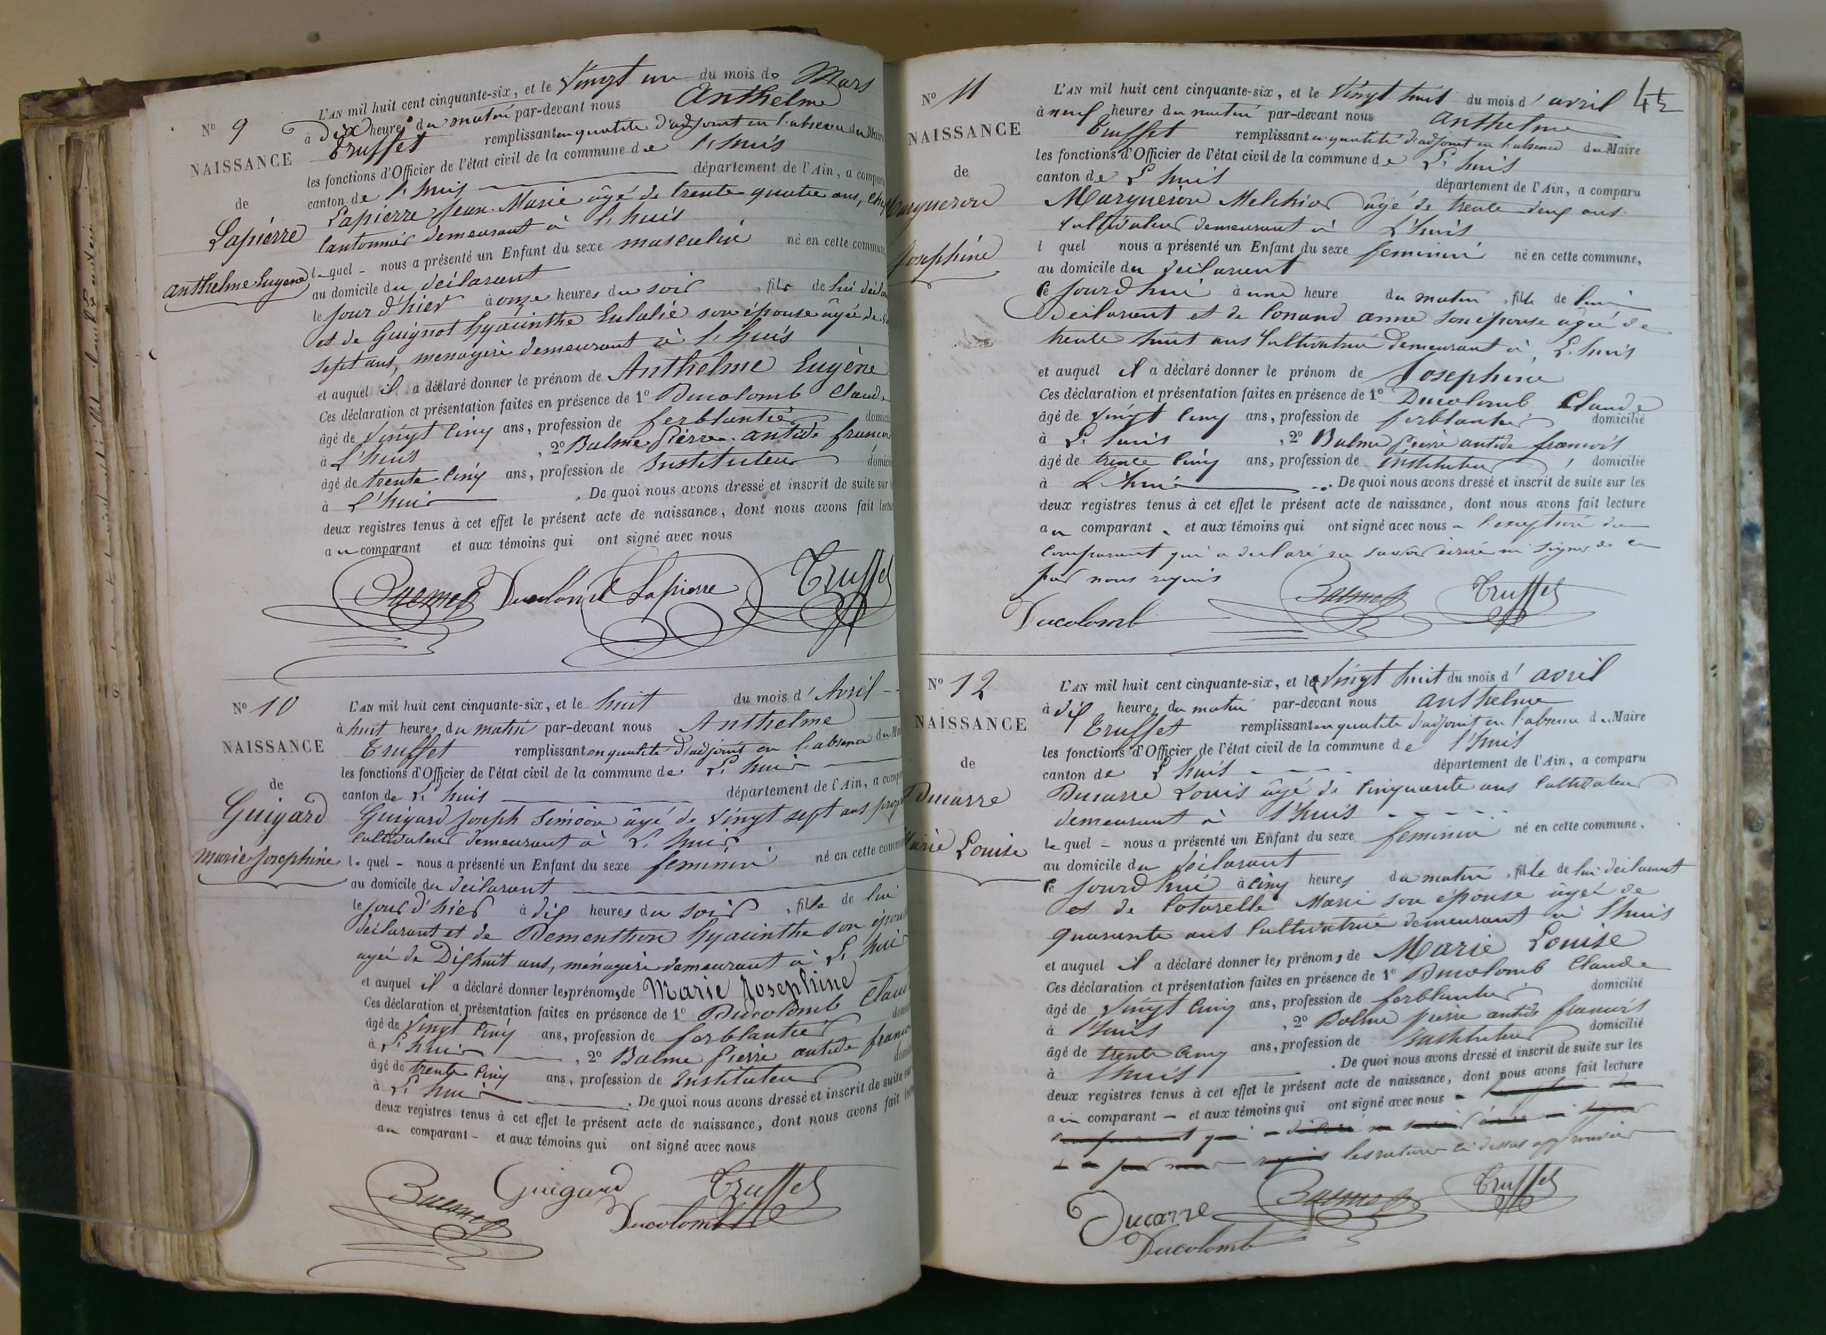 N° 9
NAISSANCE
de
Lapierre
Anthelme Eugène
L'AN mil huit cent cinquante-six, et le Vingt un du mois de Mars
à Dix heures du matin par-devant nous Anthelme
Truffet remplissant en qualité d'adjoint en l'absence du Maire
les fonctions d'Officier de l'état civil de la commune de L'huis
canton de L'huis département de l'Ain, a comparu
Lapierre Jean Marie âgé de trente quatre ans,
Cantonnier demeurant à L'huis
lequel nous a présenté un Enfant du sexe masculin né en cette commune
au domicile du déclarant
le jour d'hier à onze heures du soir, fils de lui
et de Guignot hyacinthe Eulalie son épouse âgée de
sept ans, menagère demeurant à L'huis
et auquel il a déclaré donner le prénom de Anthelme Eugène
Ces déclaration et présentation faites en présence de 1° Ducolomb Claude
âgé de Vingt Cinq ans, profession de ferblantier
à L'huis, 2° Balme Pierre antide francois
âgé de trente Cinq ans, profession de Instituteur
à L'huis. De quoi nous avons dressé et inscrit de suite sur
deux registres tenus à cet effet le présent acte de naissance, dont nous avons fait lecture
au comparant et aux témoins qui ont signé avec nous
Ducolomb Lapierre Truffet
N° 10
NAISSANCE
de
Guigard
Marie Josephine
L'AN mil huit cent cinquante-six, et le huit du mois d'Avril
à huit heures du matin par-devant nous Anthelme
Truffet remplissant en qualité d'adjoint en l'absence du
les fonctions d'Officier de l'état civil de la commune de L'huis
canton de L'huis département de l'Ain, a comparu
Guigard Joseph Siméon âgé de Vingt sept ans
Cultivateur demeurant à L'huis
lequel nous a présenté un Enfant du sexe feminin né en cette commune
au domicile du déclarant
le jour d'hier à dix heures du soir, fille de lui
déclarant et de Dementhon hyacinthe son épouse
agée de Dixhuit ans, ménagère demeurant à L'huis
et auquel il a déclaré donner les prénoms de Marie Josephine
Ces déclaration et présentation faites en présence de 1° Ducolomb Claude
âgé de Vingt Cinq ans, profession de ferblantier
à L'huis, 2° Balme Pierre antide francois
âgé de trente Cinq ans, profession de Instituteur
à L'huis. De quoi nous avons dressé et inscrit de suite sur
deux registres tenus à cet effet le présent acte de naissance, dont nous avons fait
au comparant et aux témoins qui ont signé avec nous
Guigard Truffet
Ducolomb
N° 11
NAISSANCE
de
Marqueron
Josephine
L'AN mil huit cent cinquante-six, et le Vingt huit du mois d'avril
à neuf heures du matin par-devant nous anthelme
Truffet remplissant en qualité d'adjoint en l'absence du Maire
les fonctions d'Officier de l'état civil de la commune de L'huis
canton de L'huis département de l'Ain, a comparu
Marqueron Melchior âgé de trente deux ans
Cultivateur demeurant à L'huis
lequel nous a présenté un Enfant du sexe feminin né en cette commune,
au domicile du déclarant
ce jourd'hui à une heure du matin, fille de lui
déclarant et de Conand anne son épouse âgée de
trente huit ans Cultivatrice demeurant à L'huis
et auquel il a déclaré donner le prénom de Josephine
Ces déclaration et présentation faites en présence de 1° Ducolomb Claude
âgé de Vingt Cinq ans, profession de ferblantier domicilié
à L'huis, 2° Balme Pierre antide francois
âgé de trente Cinq ans, profession de instituteur domicilié
à L'huis. De quoi nous avons dressé et inscrit de suite sur les
deux registres tenus à cet effet le présent acte de naissance, dont nous avons fait lecture
au comparant et aux témoins qui ont signé avec nous a l'exception du
comparant qui a déclaré ne savoir écrire ni signer de ce
par nous requis
Truffet
Ducolomb
N° 12
NAISSANCE
de
Ducarre
Marie Louise
L'AN mil huit cent cinquante-six, et le Vingt huit du mois d'avril
à dix heures du matin par-devant nous anthelme
Truffet remplissant en qualité d'adjoint en l'absence du Maire
les fonctions d'Officier de l'état civil de la commune de L'huis
canton de L'huis département de l'Ain, a comparu
Ducarre Louis âgé de Cinquante ans Cultivateur
demeurant à L'huis
lequel nous a présenté un Enfant du sexe feminin né en cette commune,
au domicile du déclarant
ce jourd'hui à Cinq heures du matin, fille de lui déclarant
et de Cotarelle Marie son épouse âgée de
quarante ans Cultivatrice demeurant à L'huis
et auquel il a déclaré donner les prénoms de Marie Louise
Ces déclaration et présentation faites en présence de 1° Ducolomb Claude
âgé de Vingt Cinq ans, profession de ferblantier domicilié
à L'huis, 2° Balme Pierre antide francois
âgé de trente Cinq ans, profession de instituteur domicilié
à L'huis. De quoi nous avons dressé et inscrit de suite sur les
deux registres tenus à cet effet le présent acte de naissance, dont nous avons fait lecture
au comparant et aux témoins qui ont signé avec nous
les ratures ci dessus approuvées
Ducarre Truffet
Ducolomb